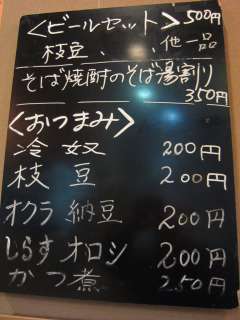 <ビールセット> 500円
枝豆、、他一品
そば焼酎のそば湯割り
350円
<おつまみ>
冷奴 200円
枝豆 200円
オクラ納豆 200円
しらすオロシ 200円
かつ煮 250円